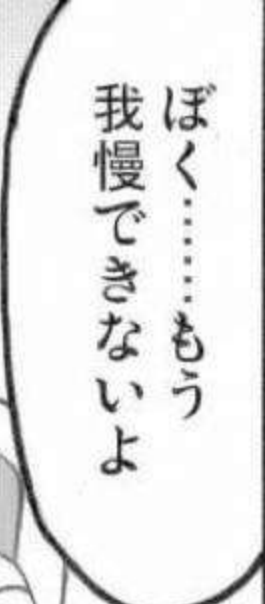 ぼく……もう
我慢できないよ